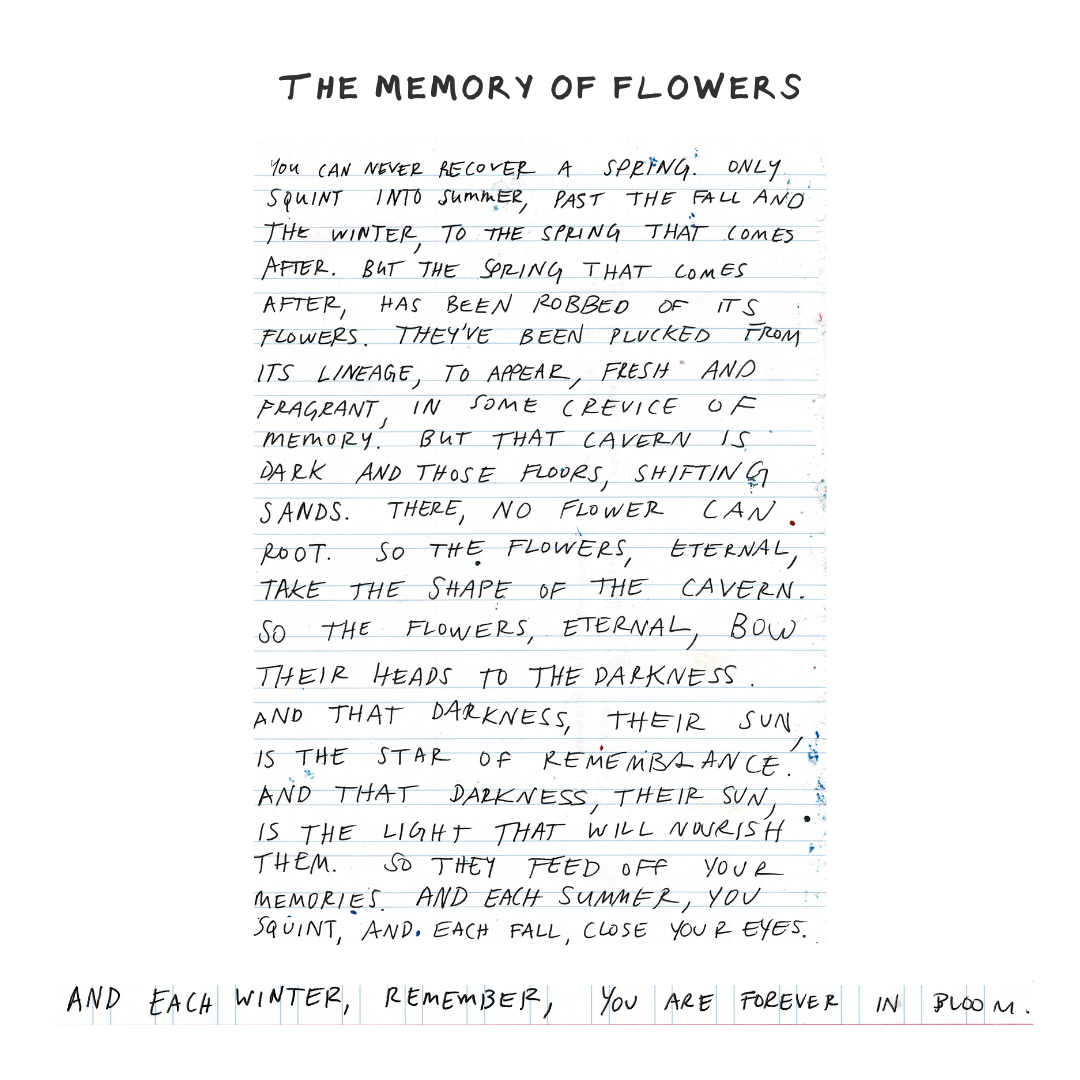 THE MEMORY OF FLOWERS
YOU CAN NEVER RECOVER A SPRING. ONLY
SQUINT INTO SUMMER, PAST THE FALL AND
THE WINTER, TO THE SPRING THAT COMES
AFTER. BUT THE SPRING THAT COMES
AFTER, HAS BEEN ROBBED OF ITS
FLOWERS. THEY'VE BEEN PLUCKED FROM
ITS LINEAGE, TO APPEAR, FRESH AND
FRAGRANT, IN SOME CREVICE OF
MEMORY. BUT THAT CAVERN IS
DARK AND THOSE FLOORS, SHIFTING
SANDS. THERE, NO FLOWER CAN
ROOT. SO THE FLOWERS, ETERNAL,
TAKE THE SHAPE OF THE CAVERN.
SO THE FLOWERS, ETERNAL, BOW
THEIR HEADS TO THE DARKNESS.
AND THAT DARKNESS, THEIR SUN,
IS THE STAR OF REMEMBRANCE.
AND THAT DARKNESS, THEIR SUN,
IS THE LIGHT THAT WILL NOURISH
THEM. SO THEY FEED OFF YOUR
MEMORIES. AND EACH SUMMER, YOU
SQUINT, AND EACH FALL, CLOSE YOUR EYES.
AND EACH WINTER, REMEMBER, YOU ARE FOREVER IN BLOOM.